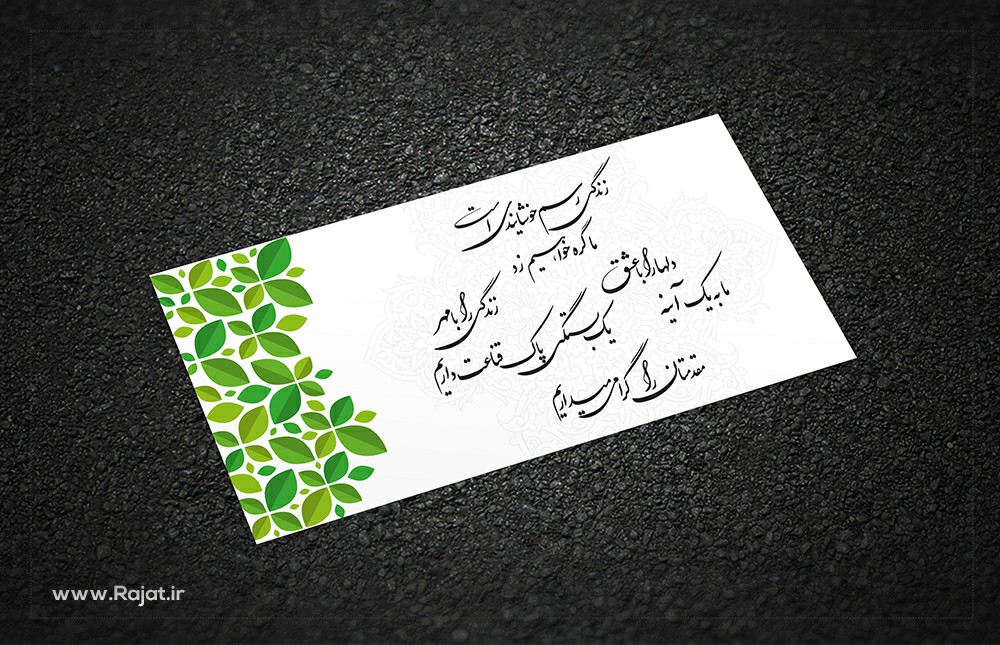 زندگی رسم خوشایندی است
ما گره خواهیم زد
دلها را با عشق زندگی را با مهر
ما به یک آینه یک بستگی پاک قناعت داریم
مقدمتان را گرامی میداریم
www.Rajat.ir